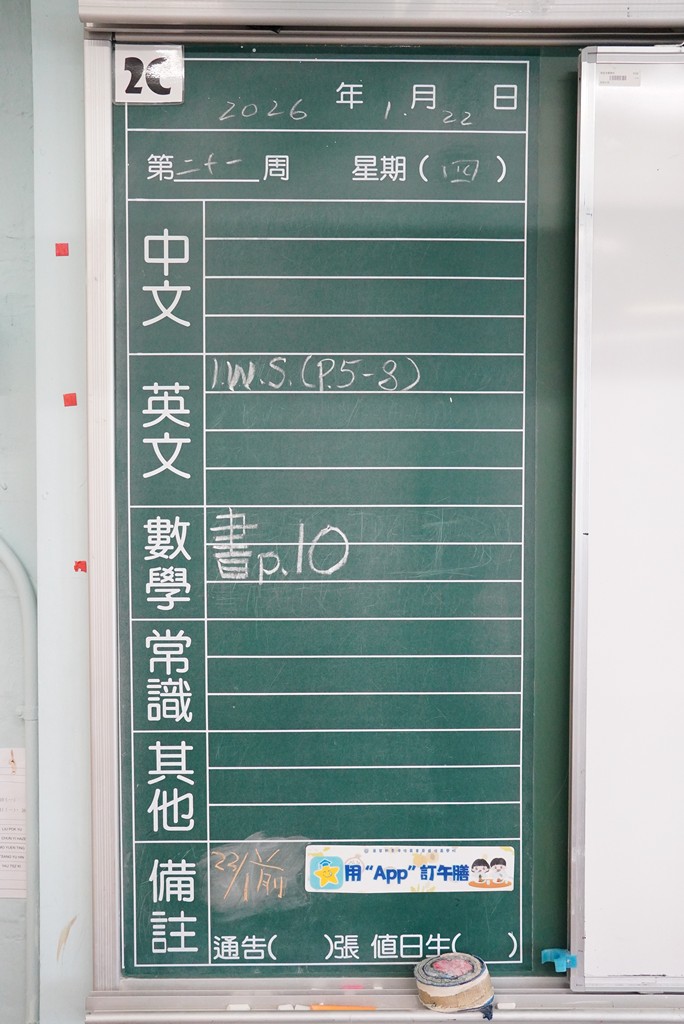 2C
2026 年 1 月 22 日
第二十一周 星期(四)
中文
英文
I.W.S.(P.5-8)
數學
書p.10
常識
其他
備註
22/1前
用“App”訂午膳
通告( )張 值日生( )